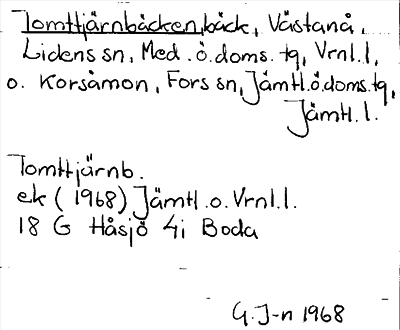 Tomttjärnbäcken, bäck, Västanå,
Lidens sn, Med. ö. doms. tg, Vrnl. l,
o. Korsåmon, Fors sn, Jämtl. ö. doms. tg,
Jämtl. l.
Tomttjärnb.
ek (1968) Jämtl. o. Vrnl. l.
18 G Håsjö 4i Boda
G. J-n 1968